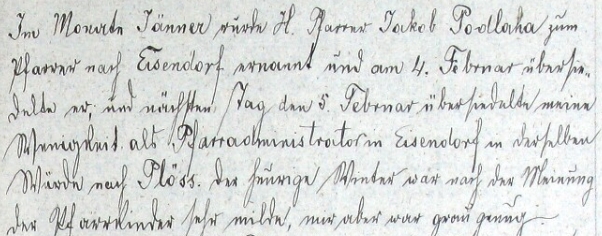 Im Monate Jänner wurde H. Pfarrer Jakob Podlaha zum
Pfarrer nach Eisendorf ernannt und am 4. Februar übersie-
delte er, und nächsten Tag den 5. Februar übersiedelte meine
Wenigkeit als Pfarradministrator in Eisendorf in derselben
Würde nach Plöss. Der heurige Winter war nach der Meinung
der Pfarrkinder sehr milde, mir aber war grau genug.